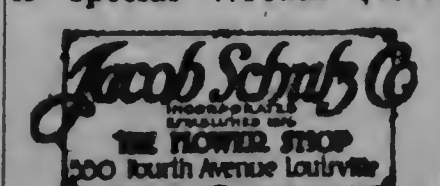 Jacob Schulz Co
INCORPORATED
ESTABLISHED
THE FLOWER SHOP
500 Fourth Avenue Louisville